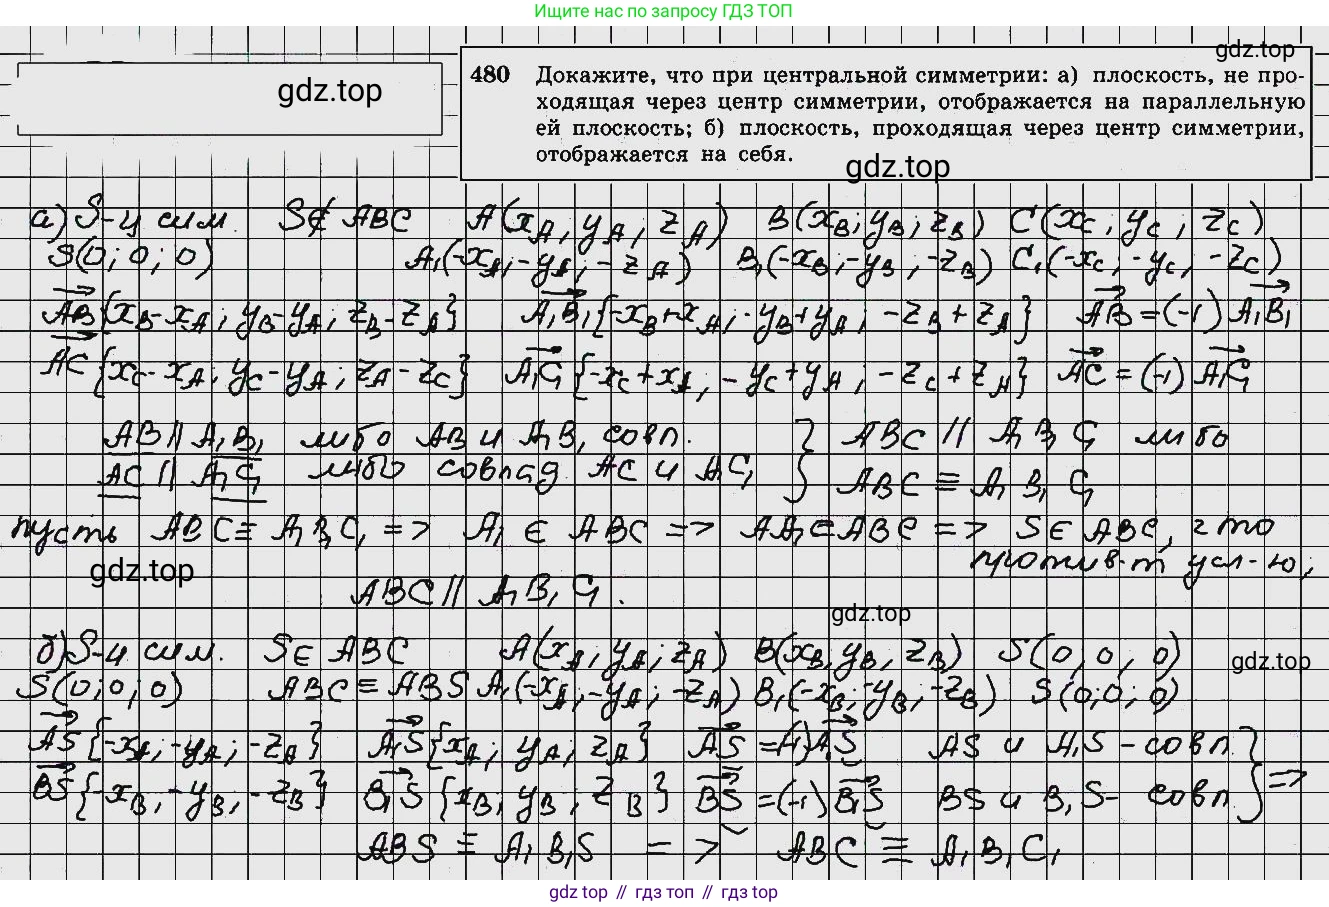 Ищите нас по запросу ГДЗ ТОП
gdz.top
gdz.top
480 Докажите, что при центральной симметрии: а) плоскость, не про-
ходящая через центр симметрии, отображается на параллельную
ей плоскость; б) плоскость, проходящая через центр симметрии,
отображается на себя.
gdz.top
а) S-ц сим. S∉ ABC A(x_A; y_A; z_A) B(x_B; y_B; z_B) C(x_C; y_C; z_C)
S(0; 0; 0) A₁(-x_A; -y_A; -z_A) B₁(-x_B; -y_B; -z_B) C₁(-x_C; -y_C; -z_C)
AB{x_B-x_A; y_B-y_A; z_B-z_A} A₁B₁{-x_B+x_A; -y_B+y_A; -z_B+z_A} AB=(-1)A₁B₁
AC{x_C-x_A; y_C-y_A; z_A-z_C} A₁C₁{-x_C+x_A; -y_C+y_A; -z_C+z_A} AC=(-1)A₁C₁
AB || A₁B₁ либо AB и A₁B₁ совп. } ABC || A₁B₁C₁ либо
AC || A₁C₁ либо совпад AC и A₁C₁ ABC ≡ A₁B₁C₁
пусть ABC ≡ A₁B₁C₁ => A₁ ∈ ABC => AA₁ ∈ ABC => S∈ABC, что
против-т усл-ю;
gdz.top
ABC || A₁B₁C₁.
gdz.top
б) S-ц сим. S∈ ABC A(x_A; y_A; z_A) B(x_B; y_B; z_B) S(0; 0; 0)
gdz.top
S(0;0;0) ABC ≡ ABS A₁(-x_A; -y_A; -z_A) B₁(-x_B; -y_B; -z_B) S(0;0;0)
AS{-x_A; -y_A; -z_A} A₁S{x_A; y_A; z_A} AS=(-1)A₁S AS и A₁S - совп. }
BS{-x_B; -y_B; -z_B} B₁S{x_B; y_B; z_B} BS=(-1)B₁S BS и B₁S - совп. =>
ABS ≡ A₁B₁S => ABC ≡ A₁B₁C₁
gdz.top // гдз топ // гдз top